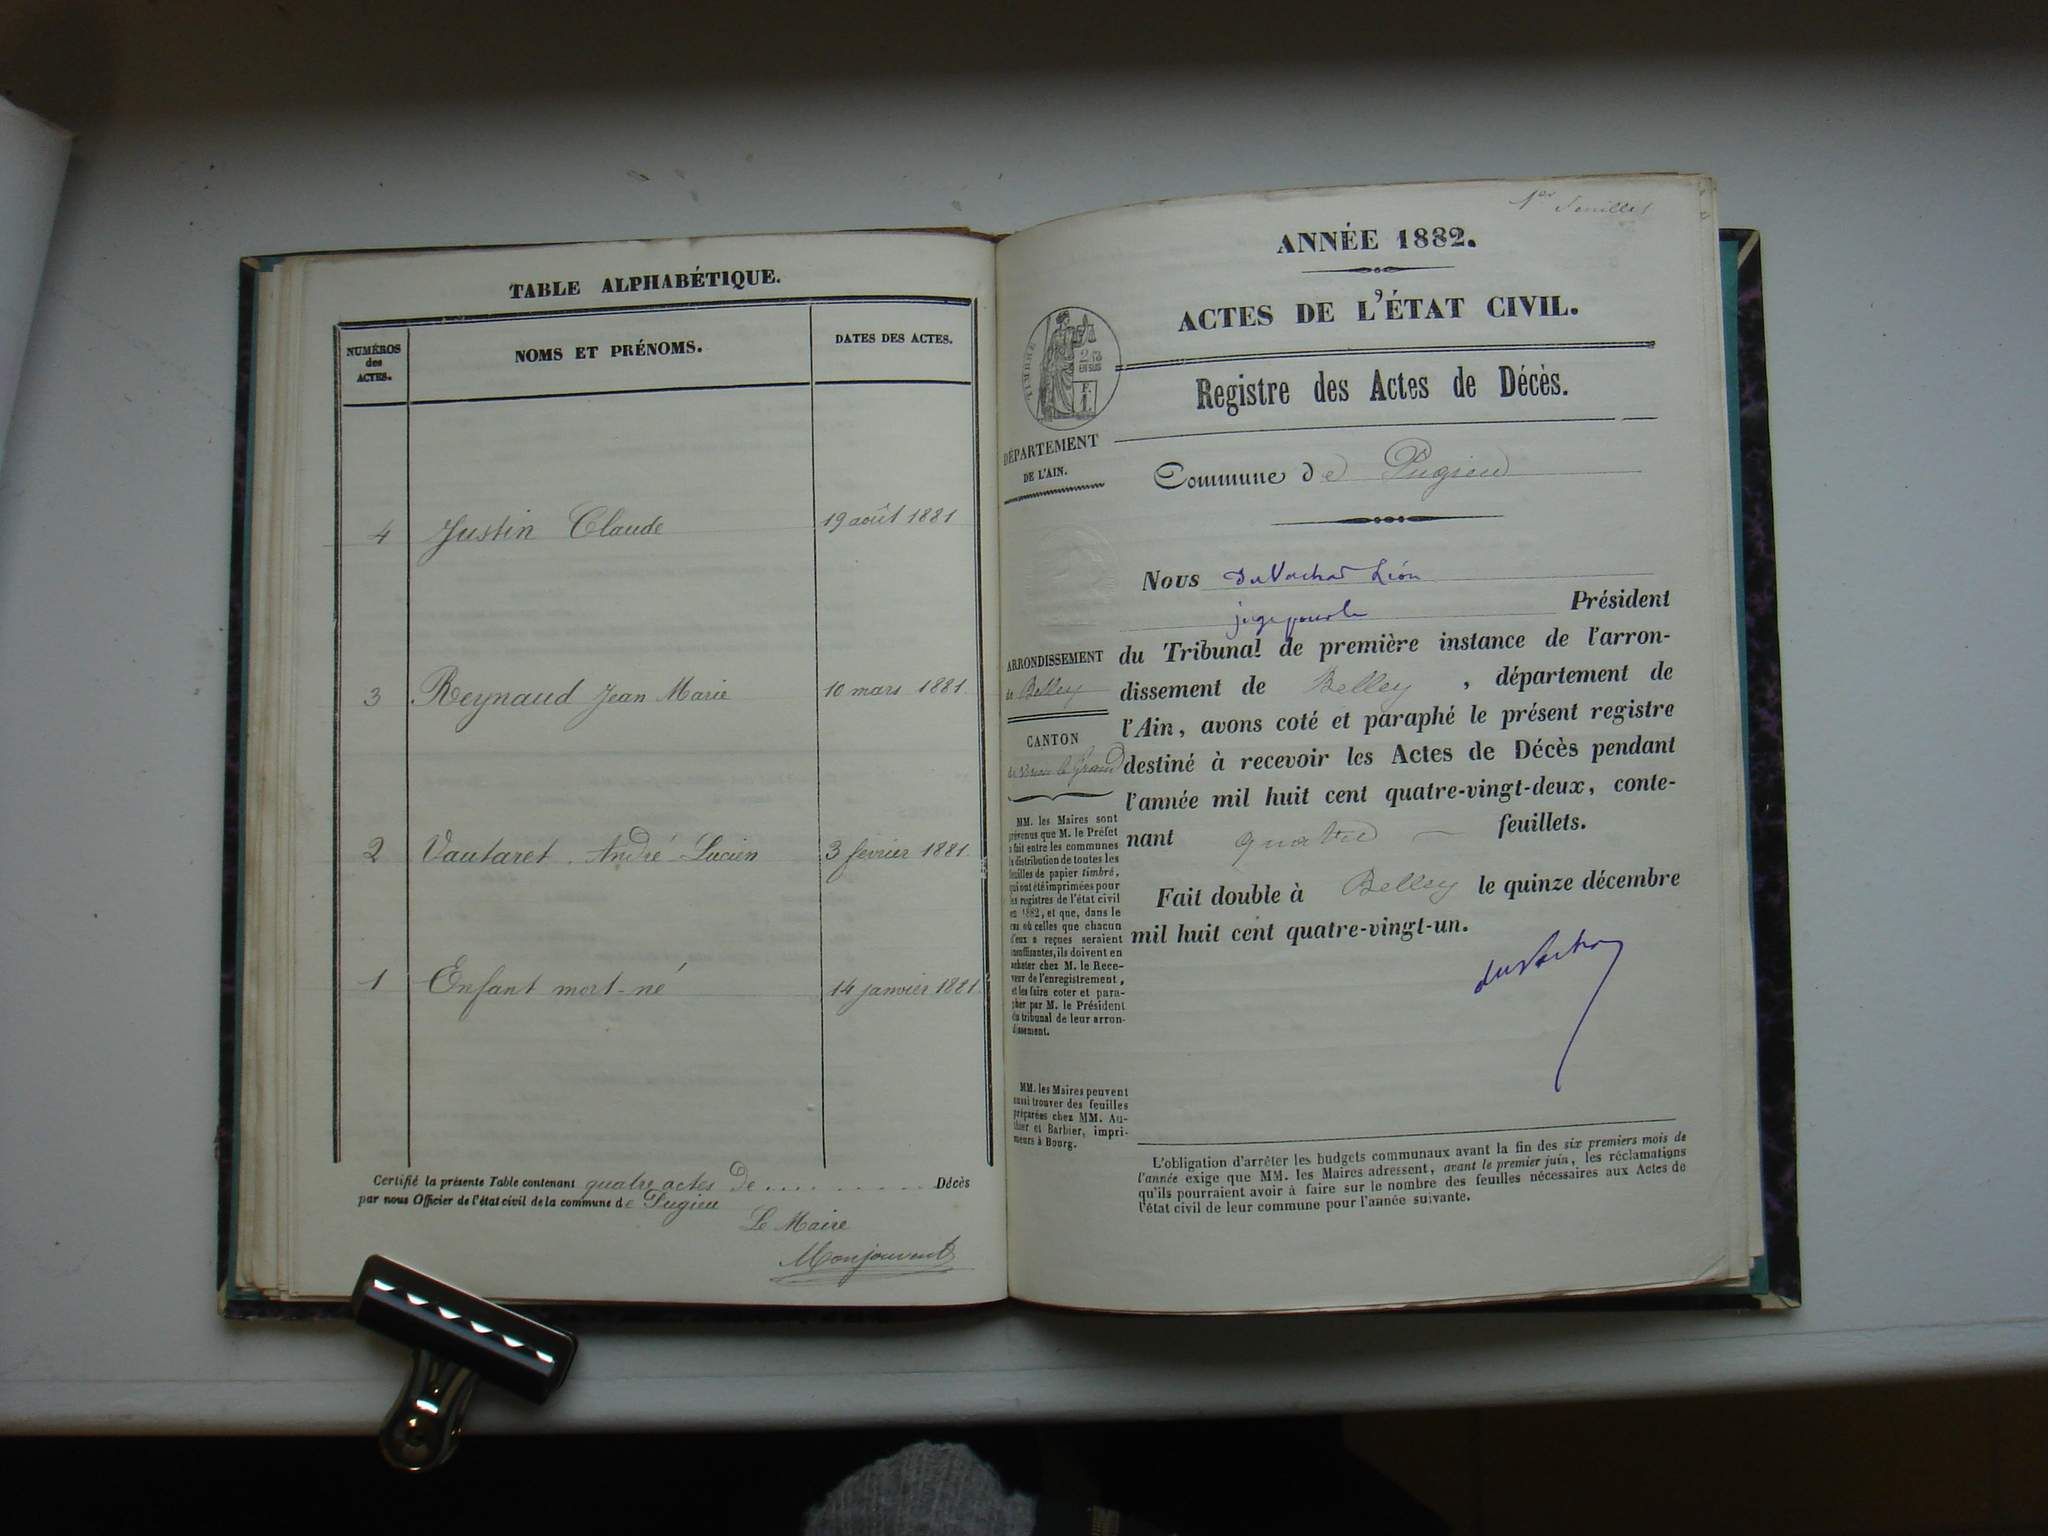 TABLE ALPHABÉTIQUE.
NUMÉROS
des
ACTES.
NOMS ET PRÉNOMS.
DATES DES ACTES.
4 Justin Claude 19 août 1881
3 Reynaud Jean Marie 10 mars 1881.
2 Vautaret André Lucien 3 février 1881.
1 Enfant mort-né 14 janvier 1881
Certifié la présente Table contenant quatre actes de .......... Décès
par nous Officier de l'état civil de la commune de Pugieu
Le Maire
Monjouvent
1er feuillet
ANNÉE 1882.
ACTES DE L'ÉTAT CIVIL.
Registre des Actes de Décès.
TIMBRE
EN SUS
DÉPARTEMENT
DE L'AIN.
Commune de Pugieu
Nous Léon
juge pour le Président
du Tribunal de première instance de l'arron-
dissement de Belley, département de
l'Ain, avons coté et paraphé le présent registre
destiné à recevoir les Actes de Décès pendant
l'année mil huit cent quatre-vingt-deux, conte-
nant quatre feuillets.
Fait double à Belley le quinze décembre
mil huit cent quatre-vingt-un.
ARRONDISSEMENT
de Belley
CANTON
de Virieu le Grand
MM. les Maires sont
prévenus que M. le Préfet
a fait entre les communes
la distribution de toutes les
feuilles de papier timbré,
qui ont été imprimées pour
les registres de l'état civil
en 1882, et que, dans le
cas où celles que chacun
d'eux a reçues seraient
insuffisantes, ils doivent en
acheter chez M. le Rece-
veur de l'enregistrement,
et les faire coter et para-
pher par M. le Président
du tribunal de leur arron-
dissement.
MM. les Maires peuvent
aussi trouver des feuilles
préparées chez MM. Au-
thier et Barbier, impri-
meurs à Bourg.
L'obligation d'arrêter les budgets communaux avant la fin des six premiers mois de
l'année exige que MM. les Maires adressent, avant le premier juin, les réclamations
qu'ils pourraient avoir à faire sur le nombre des feuilles nécessaires aux Actes de
l'état civil de leur commune pour l'année suivante.